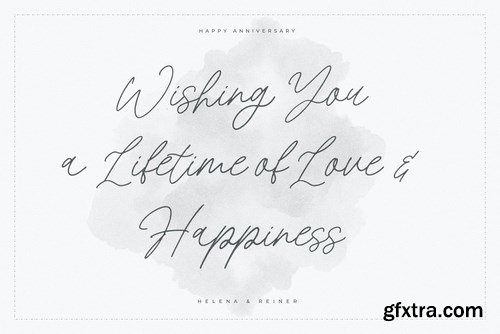 HAPPY ANNIVERSARY
Wishing You
a Lifetime of Love &
Happiness
HELENA & REINER
gfxtra.com